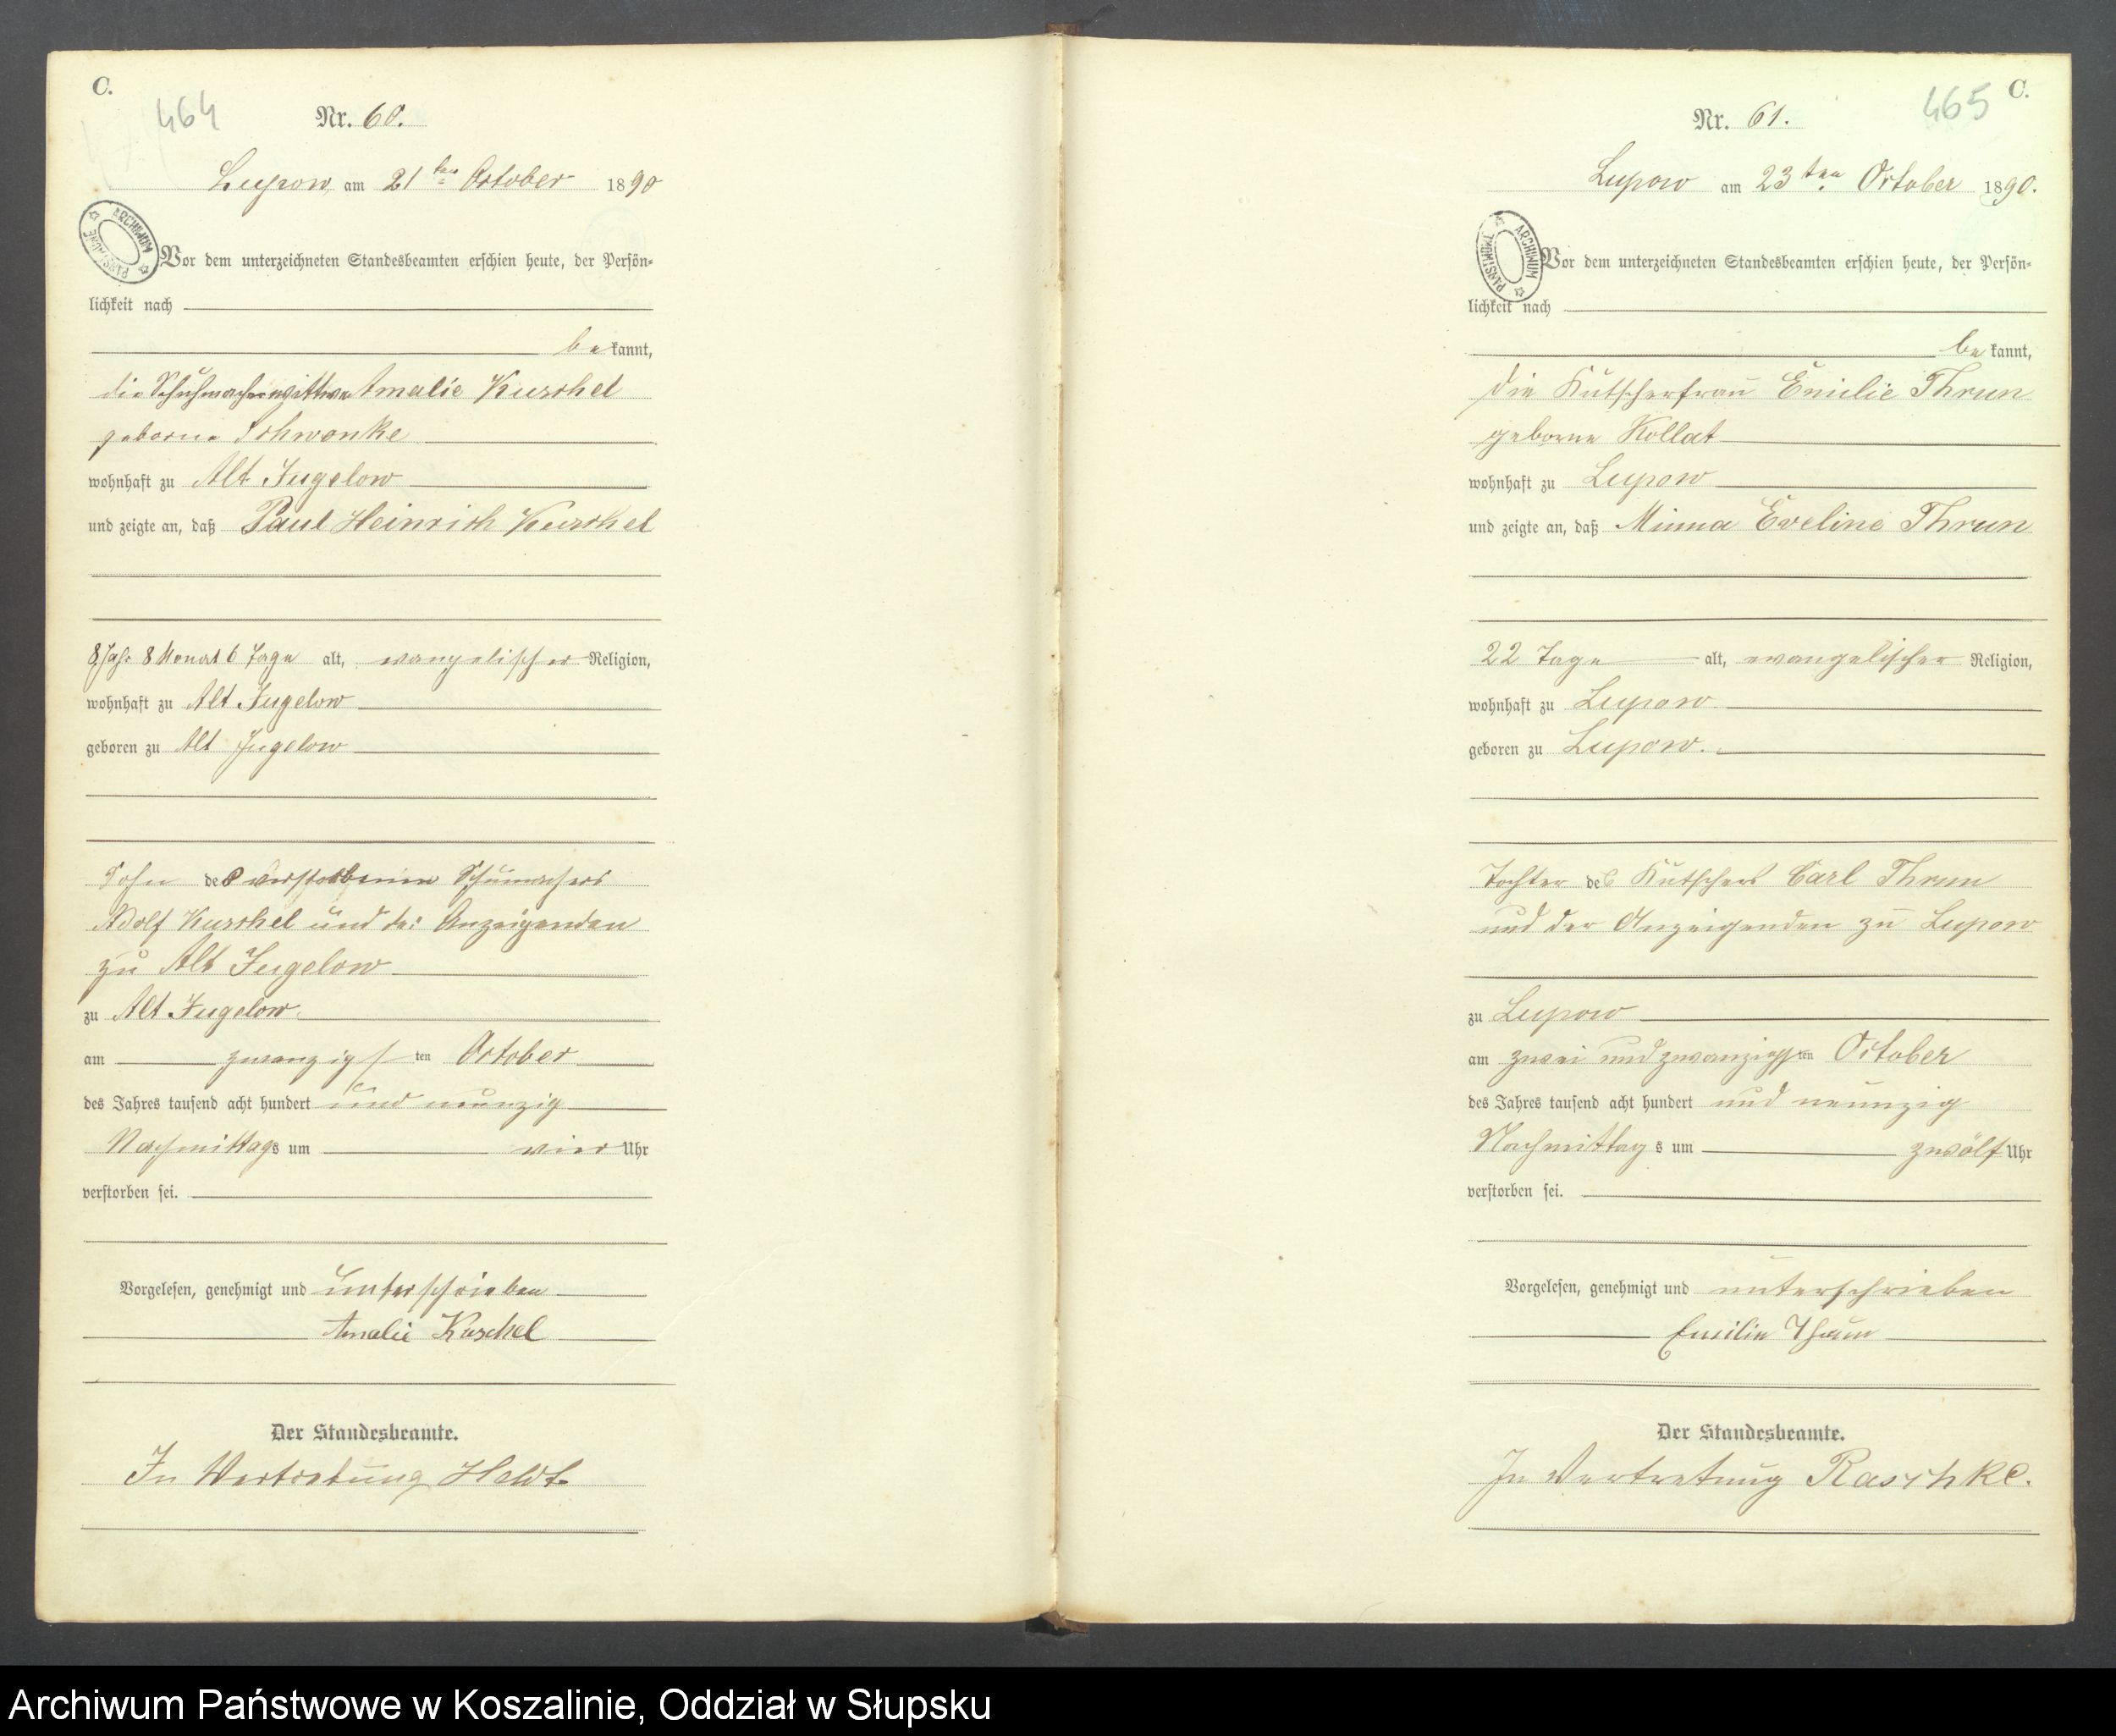 C.
464
Nr. 60.
Lupow, am 21ten October 1890
ARCHIWUM PAŃSTWOWE
Vor dem unterzeichneten Standesbeamten erschien heute, der Persön-
lichkeit nach
bekannt,
die Schuhmacherwittwe Amalie Kuschel
geborne Schwanke
wohnhaft zu Alt Jugelow
und zeigte an, daß Paul Heinrich Kuschel
8 Jahr 8 Monat 6 Tage alt, evangelischer Religion,
wohnhaft zu Alt Jugelow
geboren zu Alt Jugelow
Sohn des verstorbenen Schumachers
Adolf Kuschel und der Anzeigenden
zu Alt Jugelow
zu Alt Jugelow
am zwanzigsten October
des Jahres tausend acht hundert und neunzig
Nachmittags um vier Uhr
verstorben sei.
Vorgelesen, genehmigt und unterschrieben
Amalie Kuschel
Der Standesbeamte.
In Vertretung Heldt
C.
465
Nr. 61.
Lupow am 23ten October 1890.
ARCHIWUM PAŃSTWOWE
Vor dem unterzeichneten Standesbeamten erschien heute, der Persön-
lichkeit nach
bekannt,
die Kutscherfrau Emilie Thrun
geborne Kollat
wohnhaft zu Lupow
und zeigte an, daß Minna Eveline Thrun
22 Tage alt, evangelischer Religion,
wohnhaft zu Lupow
geboren zu Lupow.
Tochter des Kutschers Carl Thrun
und der Anzeigenden zu Lupow
zu Lupow
am zwei und zwanzigsten October
des Jahres tausend acht hundert und neunzig
Nachmittags um zwölf Uhr
verstorben sei.
Vorgelesen, genehmigt und unterschrieben
Emilie Thrun
Der Standesbeamte.
In Vertretung Raschke.
Archiwum Państwowe w Koszalinie, Oddział w Słupsku